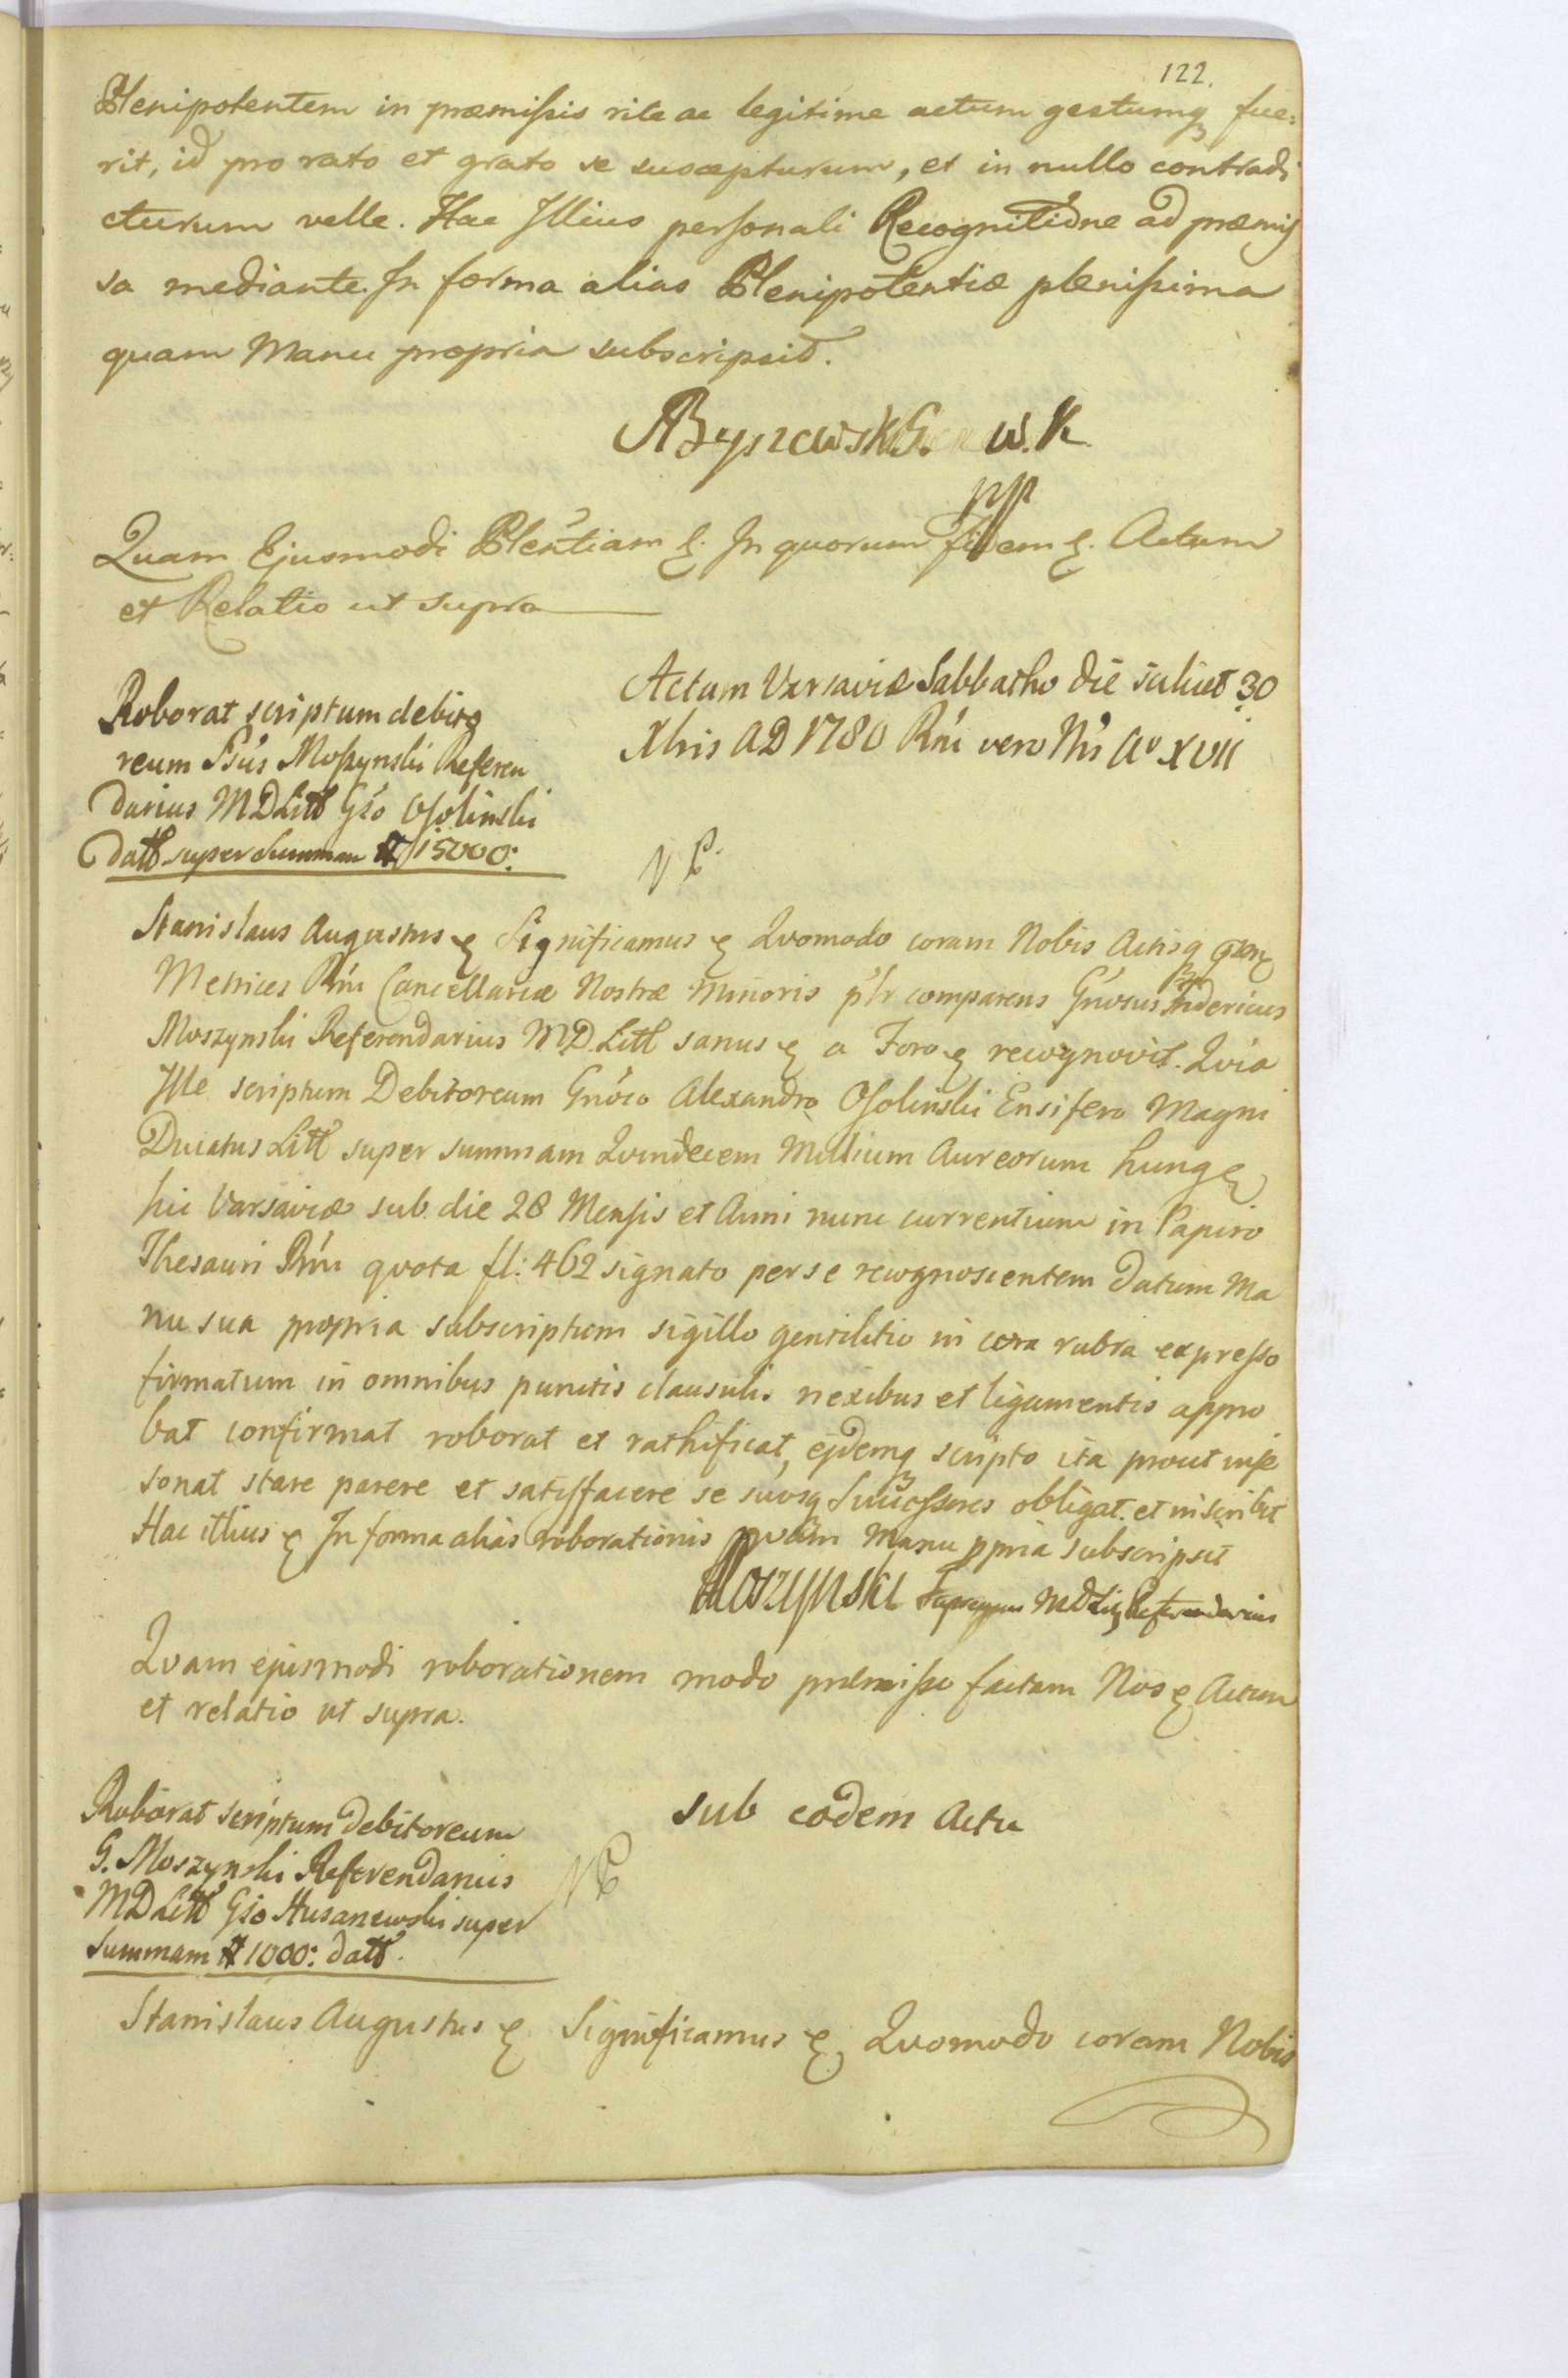 122.
Plenipotentem in præmissis rite ac legitime actum gestumq fue=
rit, id pro rato et grato se suscepturum, et in nullo contradi
cturum velle. Hac Illius personali Recognitione ad præmis
sa mediante. In forma alias Plenipotentiæ plenissima
quam Manu propria subscripsit.
ABryszewski G. w. K.
mp
Quam Ejusmodi Pleñtiam &. In quorum fidem &. Actum
et Relatio ut supra
Actum Varsaviæ Sabbatho die scilicet 30
Xbris AD 1780 Rńi vero Nŕi Aº XVII
Roborat scriptum debito
reum Moszynski Referen
darius MDLitt Gso Osolinski
datt super summam # 15000:
Stanislaus Augustus & Significamus & Quomodo coram Nobis Actisq
Metrices Rńi Cancellariæ Nostræ Minoris p'lr comparens Gńosus Fridericus
Moszynski Referendarius M.D. Litt sanus & a Foro & recognovit. Quia
Ille scriptum Debitoreum Gńoso Alexandro Osolinski Ensifero Magni
Ducatus Litt super summam Quindecem Millium Aureorum hung &
hic Varsaviæ sub die 28 Mensis et Anni nunc currentium in Papiro
Thesauri Rńi quota fl: 462 signato per se recognoscentem datum Ma
nu sua propria subscriptum sigillo gentilitio in cera rubra expresso
firmatum in omnibus punctis clausulis nexibus et ligamentis appro
bat confirmat roborat et rathificat, ejdemq scripto ita prout in se
sonat stare parere et satisfacere se suosq Successores obligat. et inscribit
Hac illius & In forma alias roborationis quam Manu ppria subscripsit
Moszynski MDLit Referendarius
Quam ejusmodi roborationem modo præmisso factam Nos & Actum
et relatio ut supra.
sub eodem Actu
Roborat scriptum Debitoreum
G. Moszynski Referendarius
MDLitt Gso Husarzewski super
summam # 1000: datt.
Stanislaus Augustus & Significamus & Quomodo coram Nobis